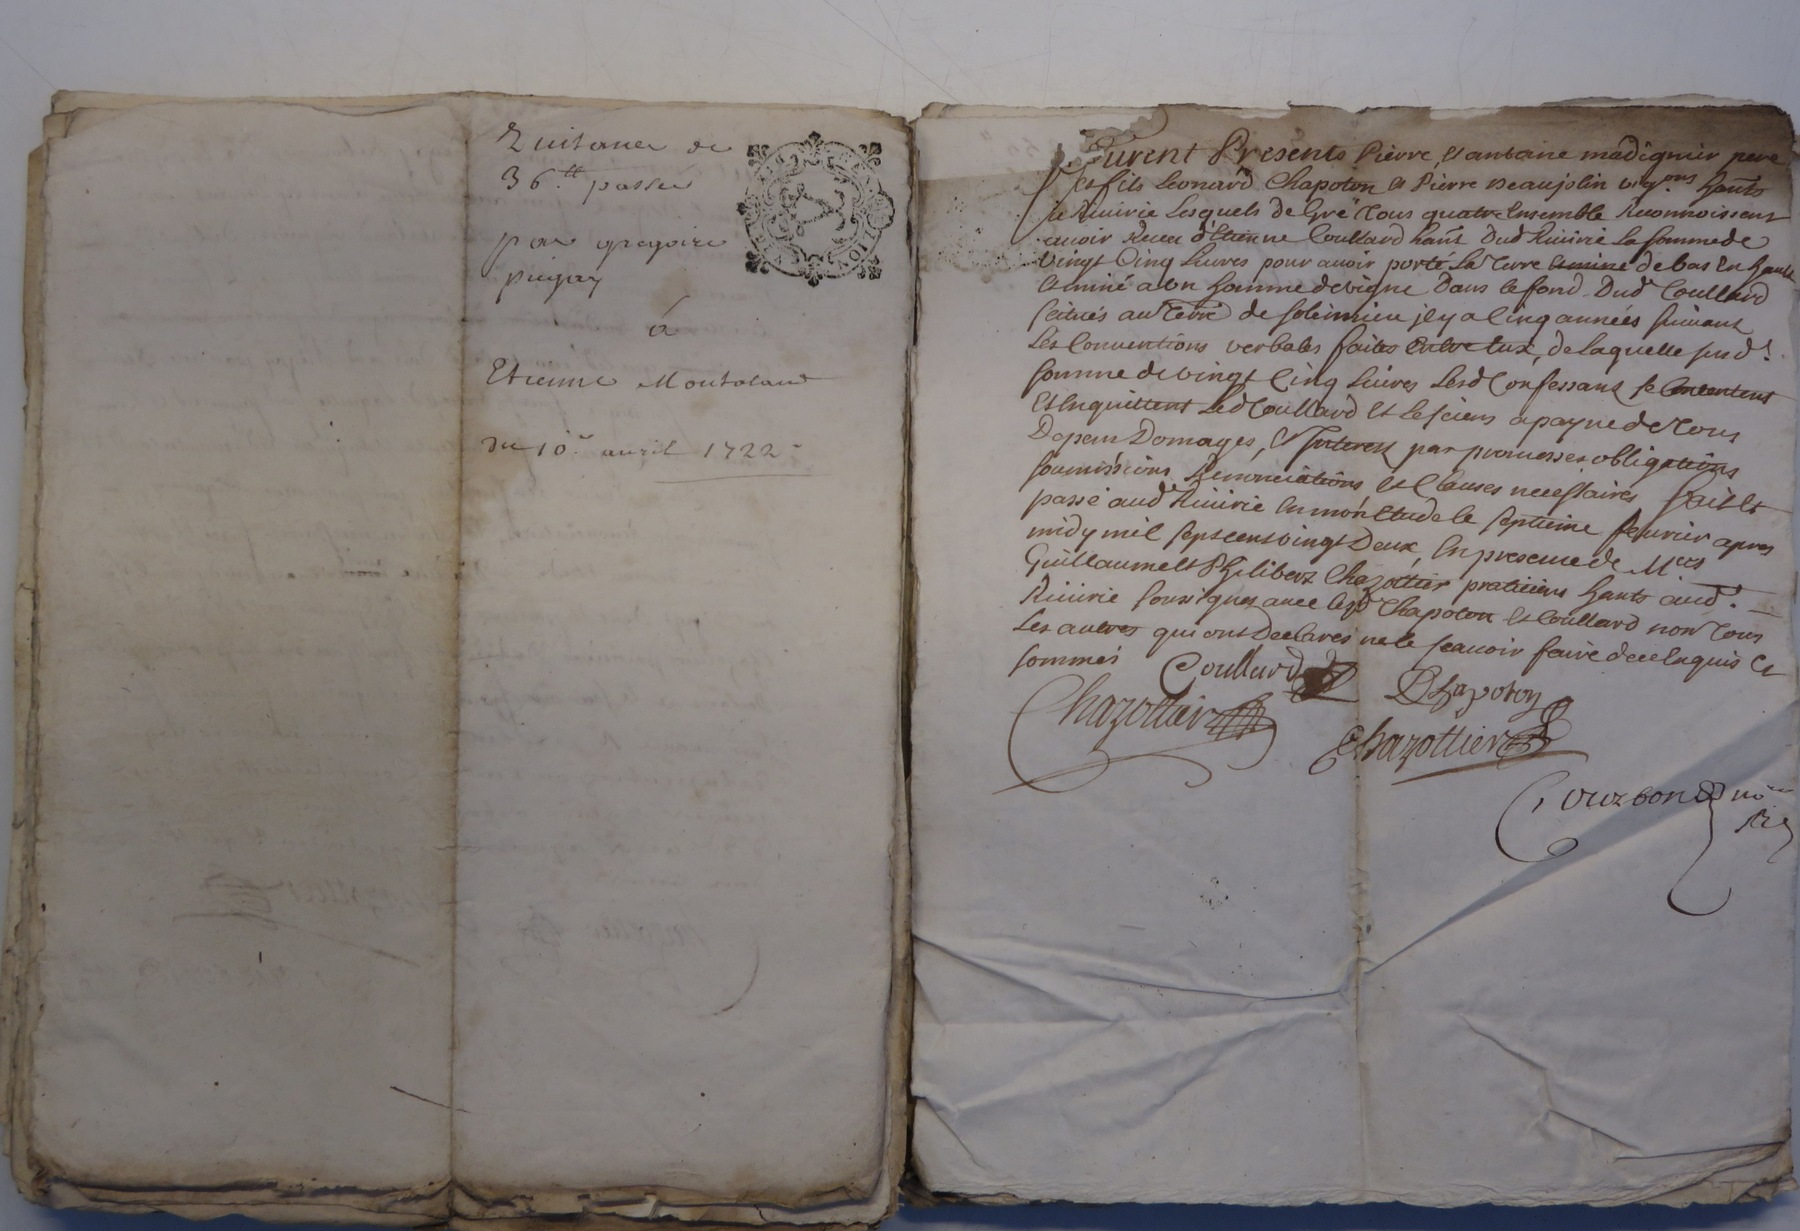 Quitance de
36.tt passée
par gregoire
pugay
à
Etienne Montaland
du 10.e avril 1722
Furent Presents Pierre, et antoine madignier pere
et fils Leonard Chapoton et Pierre Beaujolin vig.ons hants
de Riuirie Lesquels de Gré Tous quatre Ensemble Reconnoissent
auoir Receu d'Etienne Coullard hant Dud Riuirie La somme de
vingt Cinq Liures pour auoir porté La Terre de bas En haut
et miné a un homme de vigne Dans le fond Dud Coullard
scitués au Terre de solémieu jl y a Cinq années suiuant
Les Conuentions verbales faites Entre Eux, de Laquelle susd.
somme de vingt Cinq Liures Lesd Confessans se Contentent
Et En quittent Led Coullard et Les siens a payne de Tous
Depens Domages, et Interest par promesses obligations
soumissions Renonciations et Clauses necessaires fait et
passé aud Riuirie En mon Etude le septieme feurier apres
midy mil sept cent vingt Deux, En presence de Mres
Guillaume et Philibert Chazottier praticiens hants aud.
Riuirie soussignes auec lesd Chapoton et Coullard non Tous
Les autres qui ont Declares ne le scauoir faire de ce Enquis et
sommés Coullard Chapoton
Chazottier
Chazottier
nore